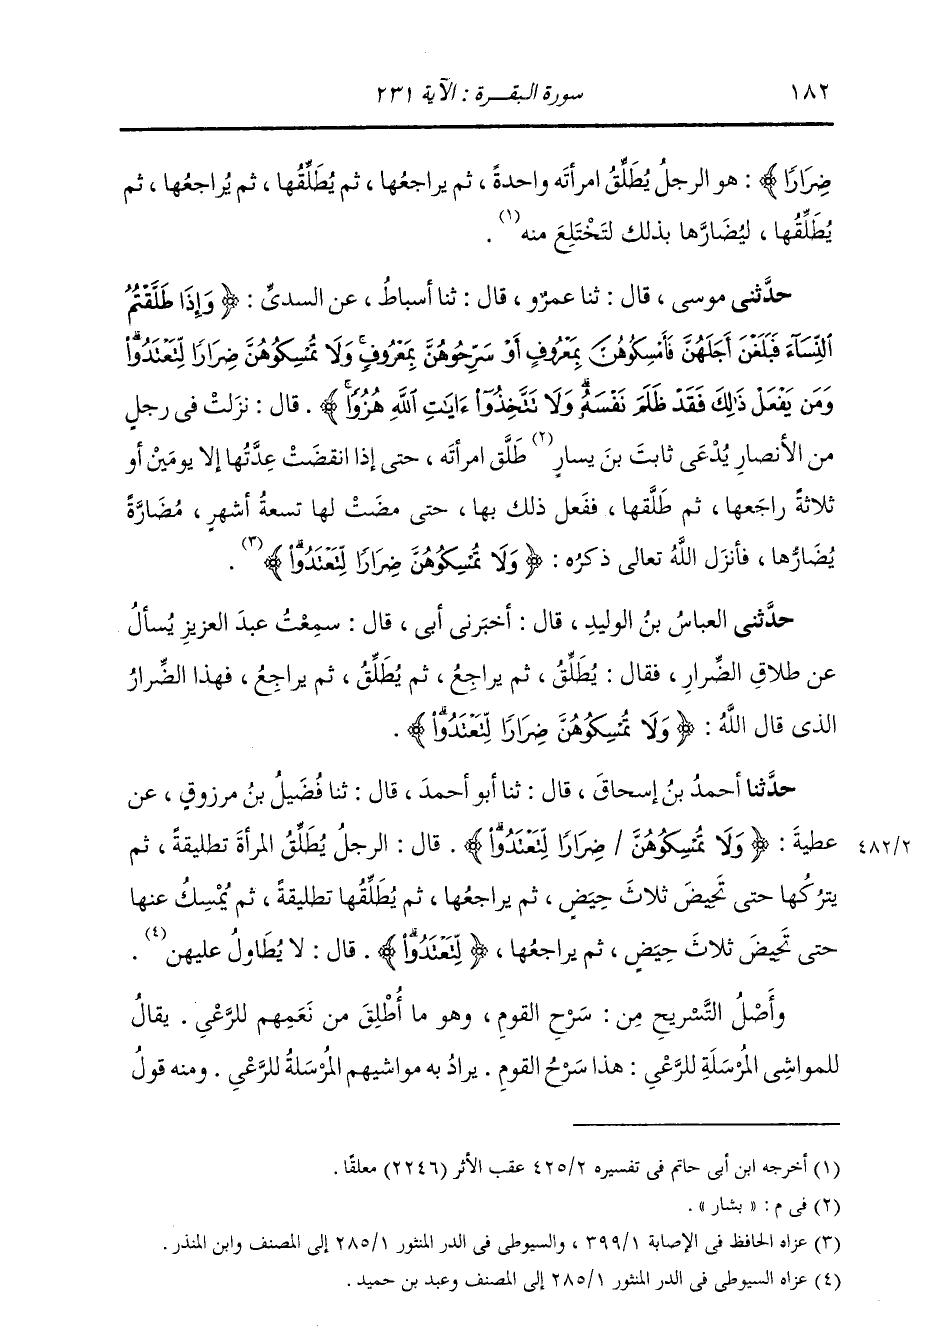 ١٨٢ سورة البقرة : الآية ٢٣١
ضِرَارًا ﴾ : هو الرجلُ يُطَلِّقُ امرأتَه واحدةً ، ثم يراجعُها ، ثم يُطَلِّقُها ، ثم يُراجعُها ، ثم
يُطَلِّقُها ، ليُضَارَّها بذلك لتَخْتَلِعَ منه(١) .
حدَّثنى موسى ، قال : ثنا عمرٌو ، قال : ثنا أسباطُ ، عن السدىِّ : ﴿ وَإِذَا طَلَّقْتُمُ
ٱلنِّسَآءَ فَبَلَغْنَ أَجَلَهُنَّ فَأَمْسِكُوهُنَّ بِمَعْرُوفٍ أَوْ سَرِّحُوهُنَّ بِمَعْرُوفٍۚ وَلَا تُمْسِكُوهُنَّ ضِرَارًا لِّتَعْتَدُواْۚ
وَمَن يَفْعَلْ ذَٰلِكَ فَقَدْ ظَلَمَ نَفْسَهُۥۚ وَلَا تَتَّخِذُوٓاْ ءَايَٰتِ ٱللَّهِ هُزُوًاۚ ﴾ . قال : نزَلتْ فى رجلٍ
من الأنصارِ يُدْعَى ثابتَ بنَ يسارٍ(٢) طَلَّق امرأتَه ، حتى إذا انقضَتْ عِدَّتُها إلا يومَيْن أو
ثلاثةً راجَعها ، ثم طَلَّقها ، ففَعل ذلك بها ، حتى مضَتْ لها تسعةُ أشهرٍ ، مُضَارَّةً
يُضَارُّها ، فأنزَل اللَّهُ تعالى ذكرُه : ﴿ وَلَا تُمْسِكُوهُنَّ ضِرَارًا لِّتَعْتَدُواْۚ ﴾(٣) .
حدَّثنى العباسُ بنُ الوليدِ ، قال : أخبَرنى أبى ، قال : سمِعْتُ عبدَ العزيزِ يُسألُ
عن طلاقِ الضِّرارِ ، فقال : يُطَلِّقُ ، ثم يراجِعُ ، ثم يُطَلِّقُ ، ثم يراجِعُ ، فهذا الضِّرارُ
الذى قال اللَّهُ : ﴿ وَلَا تُمْسِكُوهُنَّ ضِرَارًا لِّتَعْتَدُواْۚ ﴾ .
حدَّثنا أحمدُ بنُ إسحاقَ ، قال : ثنا أبو أحمدَ ، قال : ثنا فُضَيلُ بنُ مرزوقٍ ، عن
عطيةَ : ﴿ وَلَا تُمْسِكُوهُنَّ / ضِرَارًا لِّتَعْتَدُواْۚ ﴾ . قال : الرجلُ يُطَلِّقُ المرأةَ تطليقةً ، ثم ٤٨٢/٢
يترُكُها حتى تَحِيضَ ثلاثَ حِيَضٍ ، ثم يراجعُها ، ثم يُطَلِّقُها تطليقةً ، ثم يُمْسِكُ عنها
حتى تَحِيضَ ثلاثَ حِيَضٍ ، ثم يراجعُها ، ﴿ لِّتَعْتَدُواْۚ ﴾ . قال : لا يُطَاولُ عليهن(٤) .
وأَصْلُ التَّسريحِ مِن : سَرْحِ القومِ ، وهو ما أُطْلِقَ من نَعَمِهم للرَّعْىِ . يقالُ
للمواشِى المُرْسَلَةِ للرَّعْىِ : هذا سَرْحُ القومِ . يرادُ به مواشيهم المُرْسَلةُ للرَّعْىِ . ومنه قولُ
(١) أخرجه ابن أبى حاتم فى تفسيره ٤٢٥/٢ عقب الأثر (٢٢٤٦) معلقًا .
(٢) فى م : « بشار » .
(٣) عزاه الحافظ فى الإصابة ٣٩٩/١ ، والسيوطى فى الدر المنثور ٢٨٥/١ إلى المصنف وابن المنذر .
(٤) عزاه السيوطى فى الدر المنثور ٢٨٥/١ إلى المصنف وعبد بن حميد .